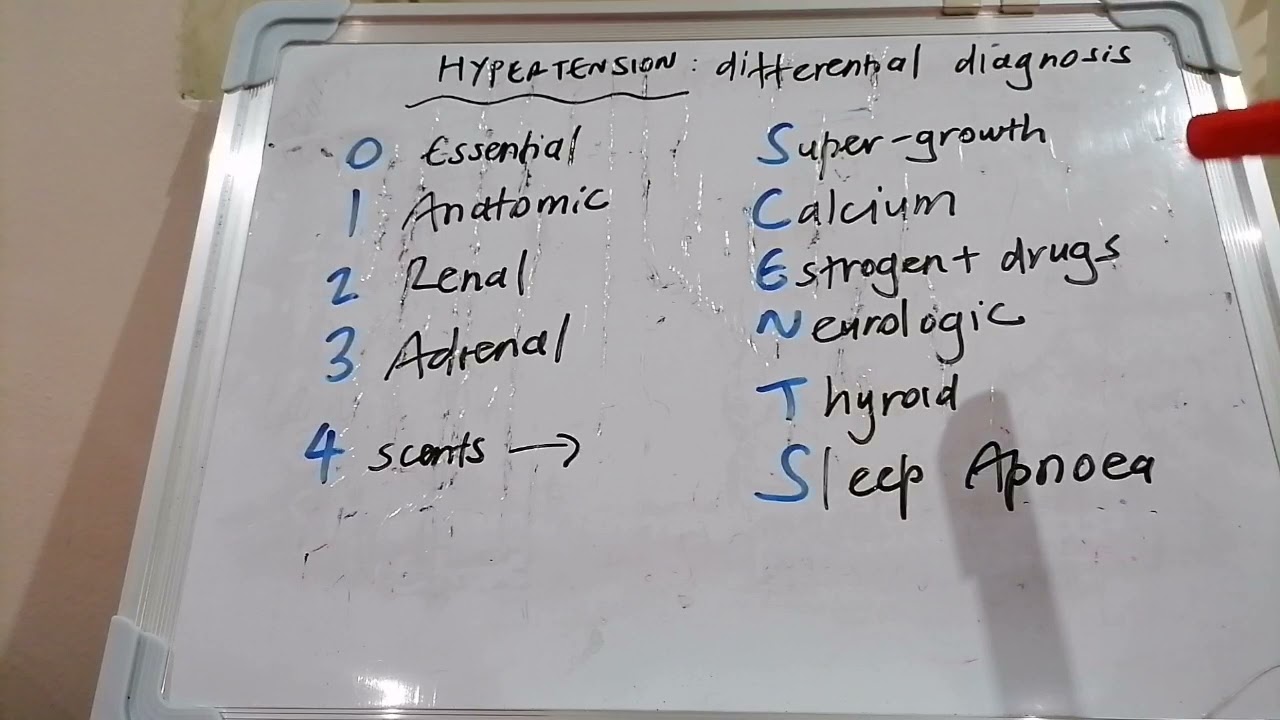 HYPERTENSION: differential diagnosis
0 Essential
1 Anatomic
2 Renal
3 Adrenal
4 scents →
Super-growth
Calcium
Estrogen + drugs
Neurologic
Thyroid
Sleep Apnoea